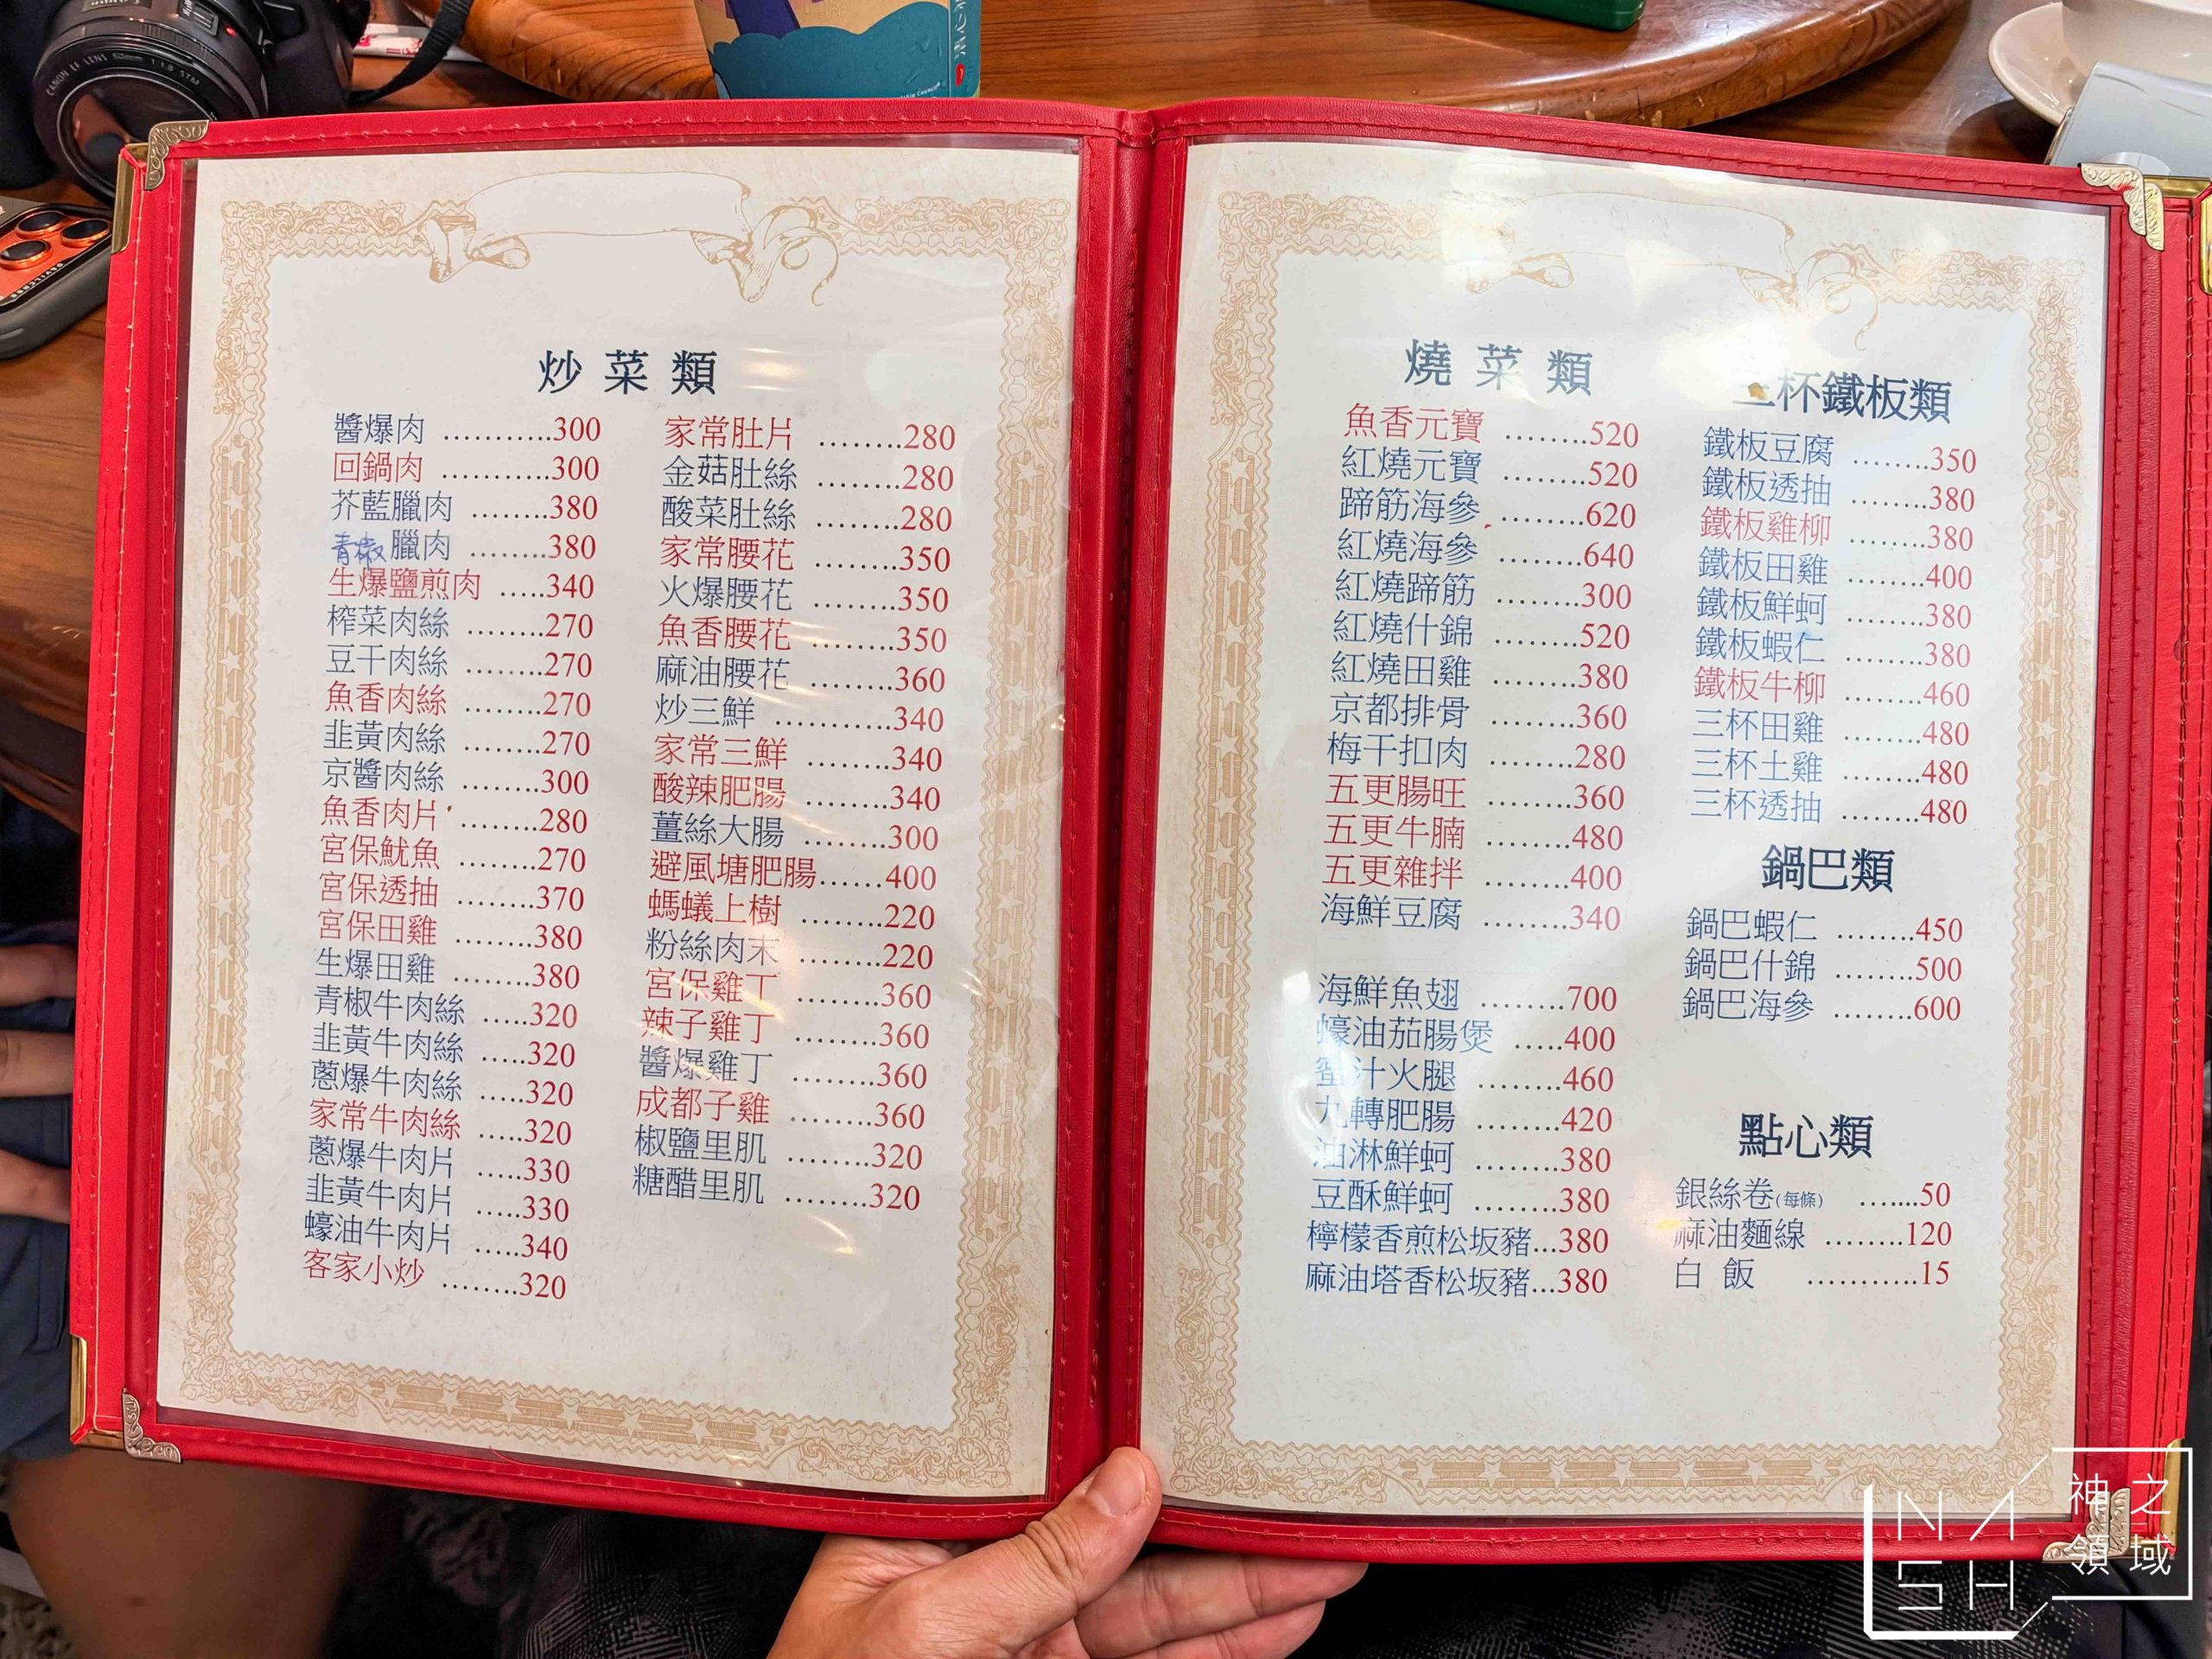 CANON EF LENS 50mm 1:1.8 STM
炒菜類
醬爆肉 ...........300
回鍋肉 ...........300
芥藍臘肉 ........380
青椒臘肉 ........380
生爆鹽煎肉 .....340
榨菜肉絲 ........270
豆干肉絲 ........270
魚香肉絲 ........270
韭黃肉絲 ........270
京醬肉絲 ........300
魚香肉片 ........280
宮保魷魚 ........270
宮保透抽 ........370
宮保田雞 ........380
生爆田雞 ........380
青椒牛肉絲 .....320
韭黃牛肉絲 .....320
蔥爆牛肉絲 .....320
家常牛肉絲 .....320
蔥爆牛肉片 .....330
韭黃牛肉片 .....330
蠔油牛肉片 .....340
客家小炒 ........320
家常肚片 ........280
金菇肚絲 ........280
酸菜肚絲 ........280
家常腰花 ........350
火爆腰花 ........350
魚香腰花 ........350
麻油腰花 ........360
炒三鮮 ...........340
家常三鮮 ........340
酸辣肥腸 ........340
薑絲大腸 ........300
避風塘肥腸......400
螞蟻上樹 ........220
粉絲肉末 ........220
宮保雞丁 ........360
辣子雞丁 ........360
醬爆雞丁 ........360
成都子雞 ........360
椒鹽里肌 ........320
糖醋里肌 ........320
燒菜類
魚香元寶 ........520
紅燒元寶 ........520
蹄筋海參 ........620
紅燒海參 ........640
紅燒蹄筋 ........300
紅燒什錦 ........520
紅燒田雞 ........380
京都排骨 ........360
梅干扣肉 ........280
五更腸旺 ........360
五更牛腩 ........480
五更雜拌 ........400
海鮮豆腐 ........340
海鮮魚翅 ........700
蠔油茄腸煲 .....400
蜜汁火腿 ........460
九轉肥腸 ........420
油淋鮮蚵 ........380
豆酥鮮蚵 ........380
檸檬香煎松坂豬...380
麻油塔香松坂豬...380
三杯鐵板類
鐵板豆腐 ........350
鐵板透抽 ........380
鐵板雞柳 ........380
鐵板田雞 ........400
鐵板鮮蚵 ........380
鐵板蝦仁 ........380
鐵板牛柳 ........460
三杯田雞 ........480
三杯土雞 ........480
三杯透抽 ........480
鍋巴類
鍋巴蝦仁 ........450
鍋巴什錦 ........500
鍋巴海參 ........600
點心類
銀絲卷(每條) .......50
麻油麵線 ........120
白 飯 ...........15
NASH
神之
領域